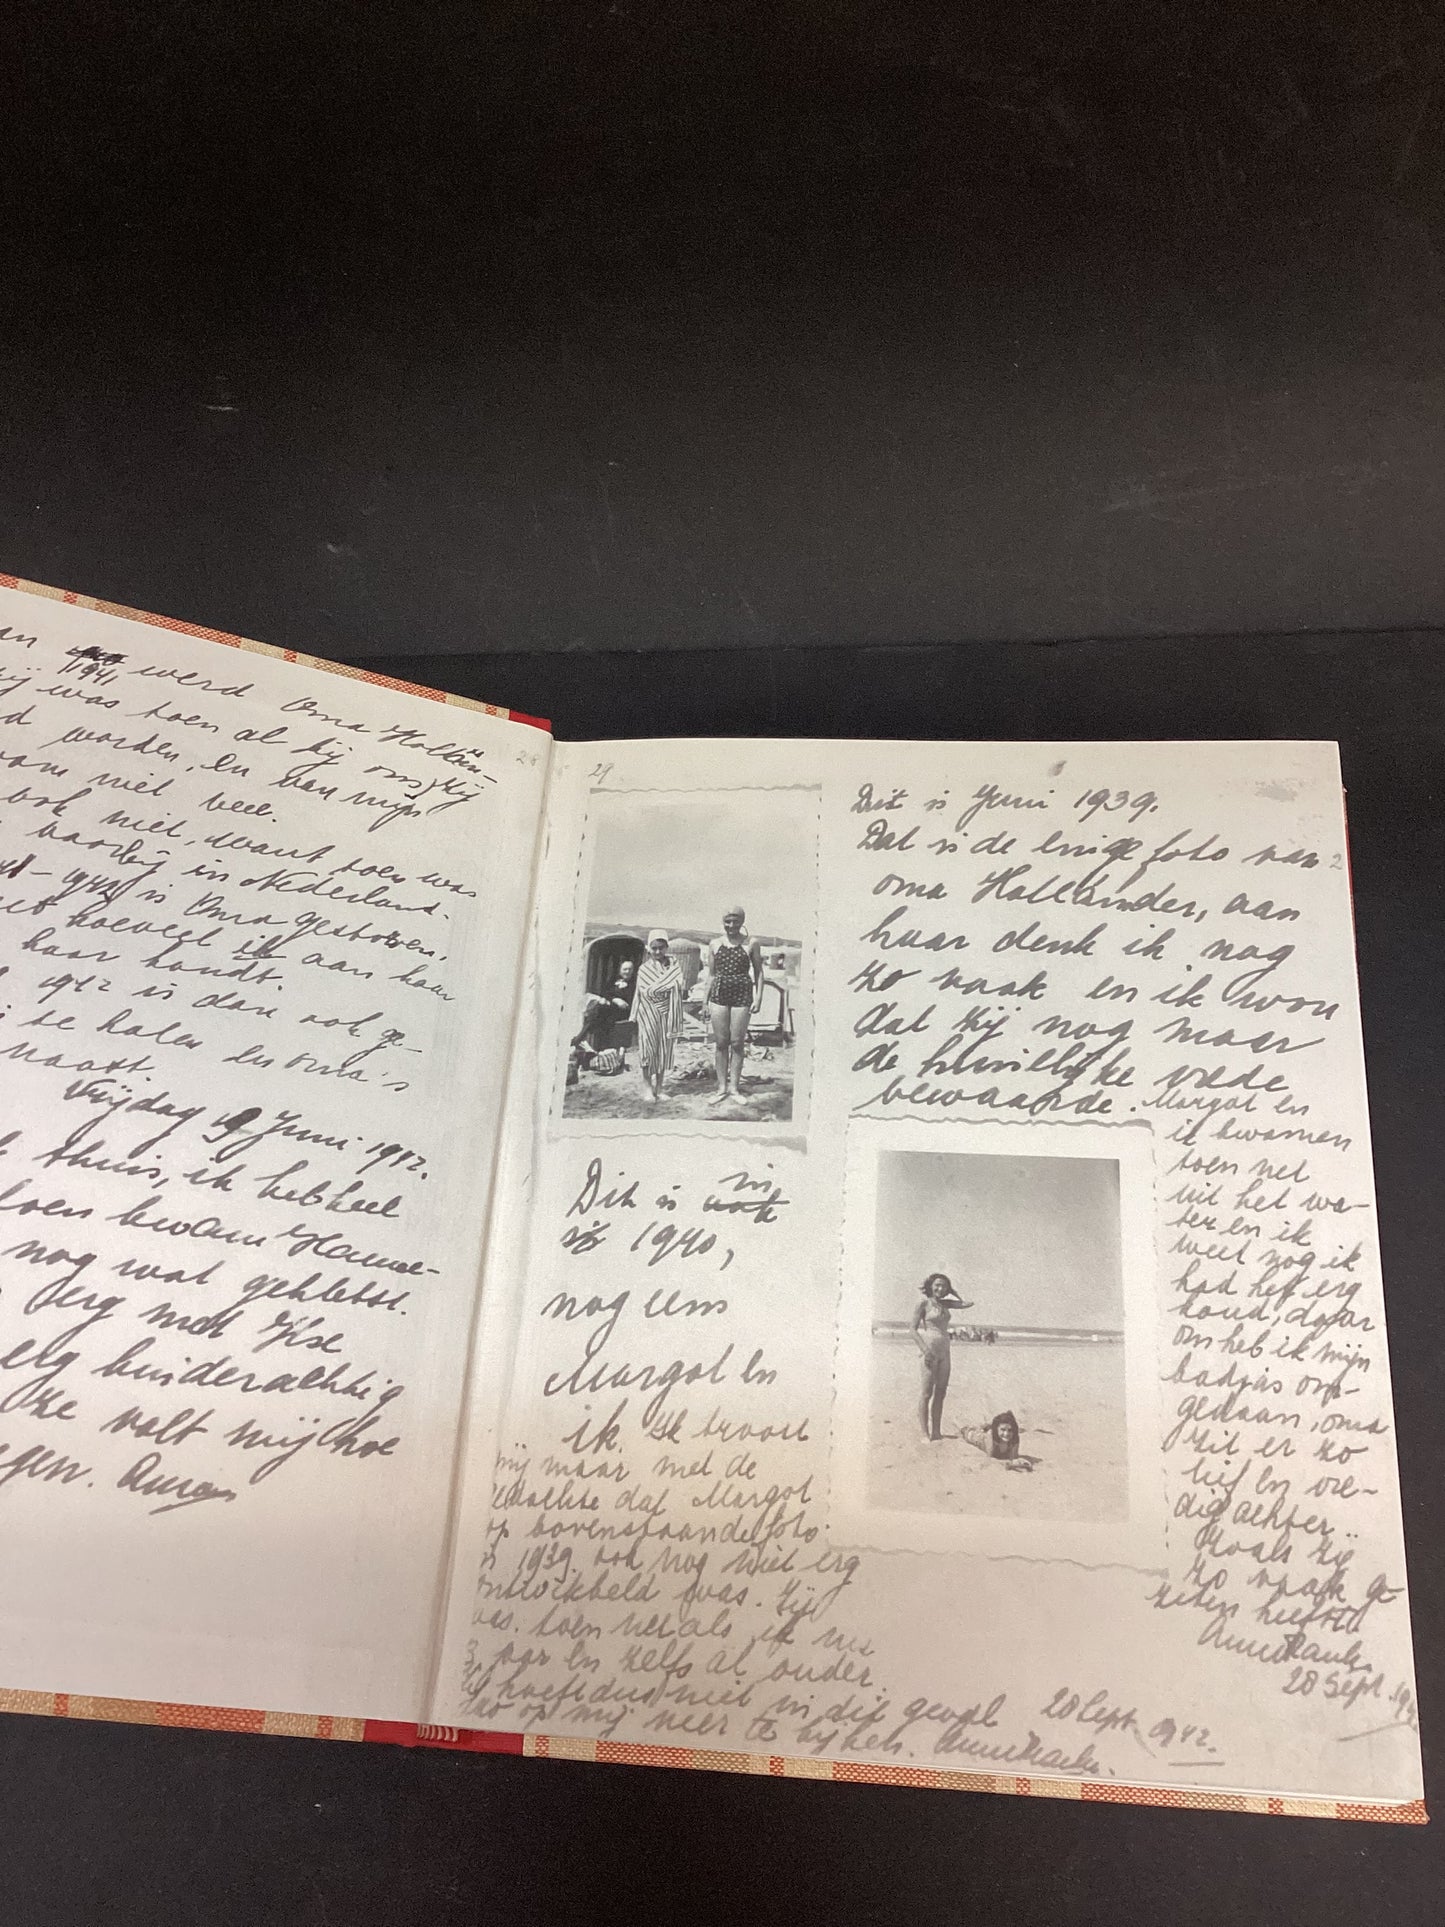 an 1941 werd Oma Hollän-
zij was toen al bij ons, zij
worden, en van mijn
niet veel.
ook niet, want toen was
voorbij in Nederland.
1942 is Oma gestorven,
hoeveel ik aan haar
haar houdt.
1942 is dan ook ge-
te halen en oma's
naast.
Vrijdag 19 Juni 1942.
thuis, ik heb heel
toen kwam Hanne-
nog wat gekletst.
erg met Ilse
erg kinderachtig
ze valt mij hoe
Anne
28
29
Dit is in
1940,
nog eens
Margot en
ik. Ik troost
mij maar met de
gedachte dat Margot
op bovenstaande foto
is 1939. ook nog niet erg
ontwikkeld was. Zij
was toen net als ik nu
13 jaar en zelfs al ouder.
hoeft dus niet in dit geval
zoo op mij neer te kijken. Anne Frank.
28 Sept. 1942.
Dit is Juni 1939.
Dat is de enige foto van
oma Hollander, aan
haar denk ik nog
zo vaak en ik wou
dat zij nog maar
de huiselijke vrede
bewaarde. Margot en
ik kwamen
toen net
uit het wa-
ter en ik
weet nog ik
had het erg
koud, daar
om heb ik mijn
badjas om-
gedaan, oma
zit er zo
lief en vre-
dig achter..
Zoals zij
zo vaak ge-
zeten heeft.
Anne Frank.
28 Sept. 1942